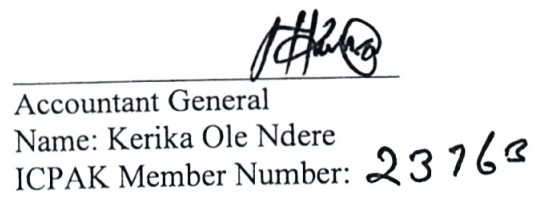 Accountant General
Name: Kerika Ole Ndere
ICPAK Member Number: 23763